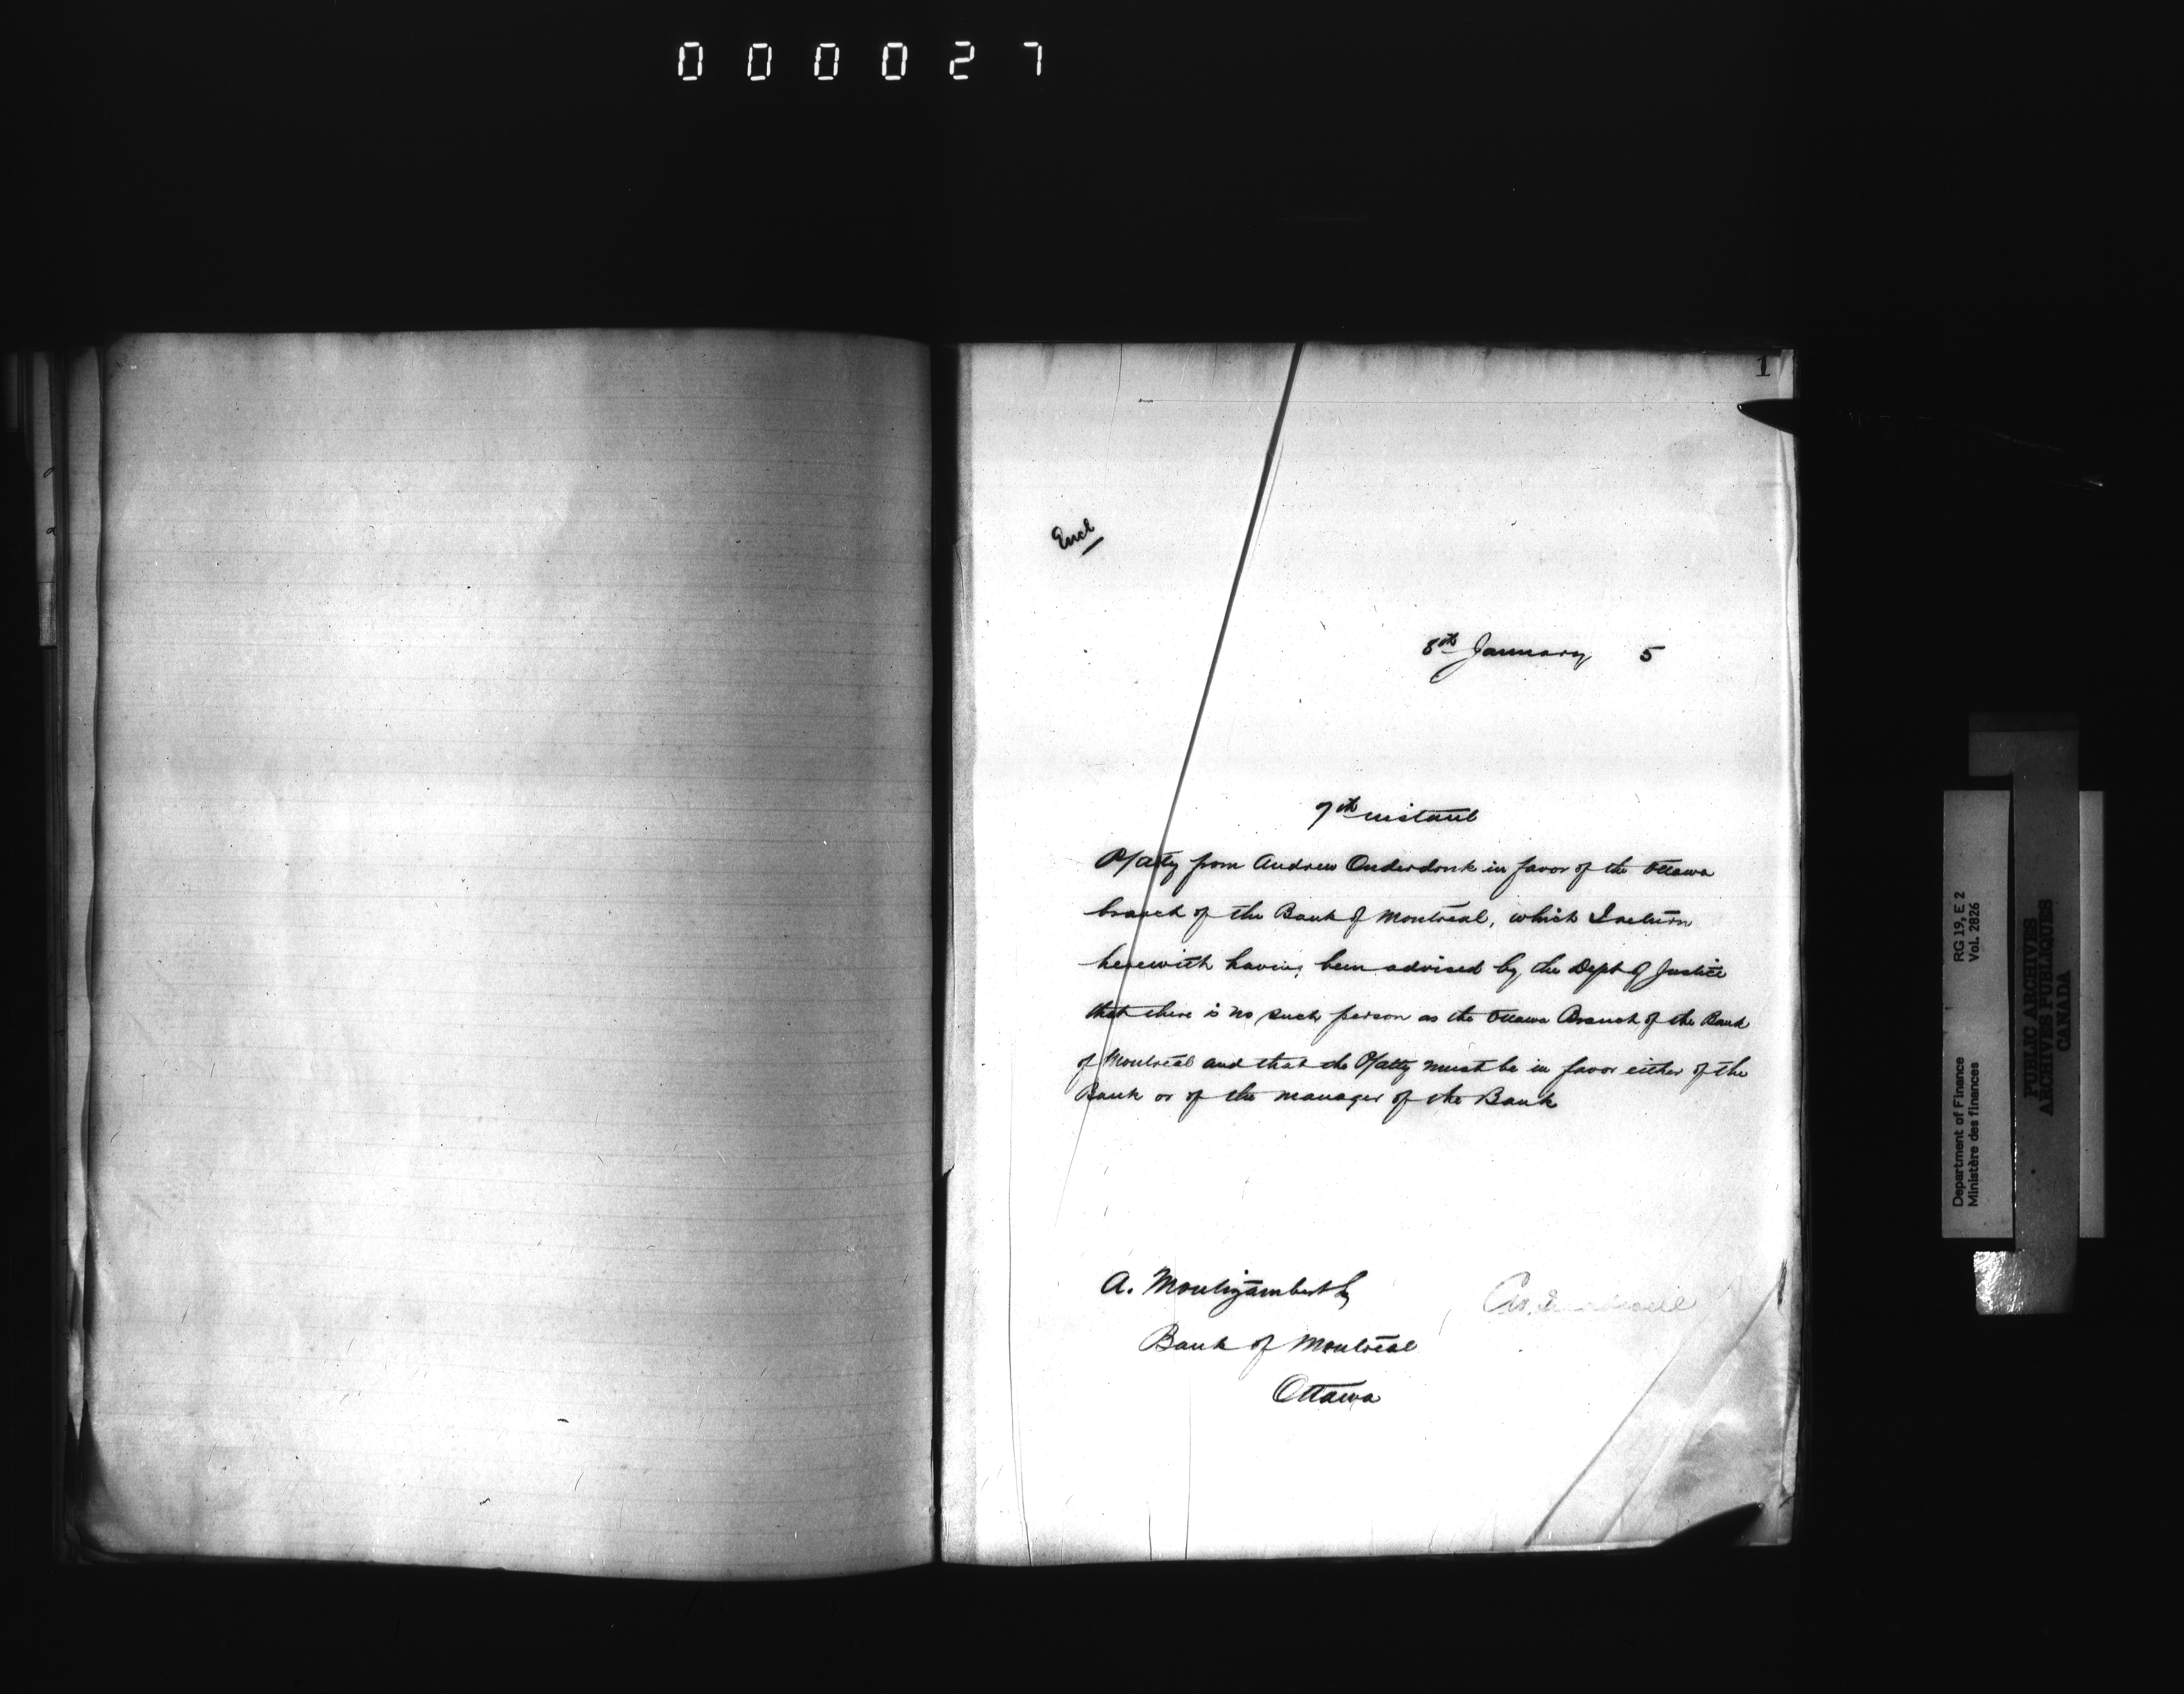 000027
1
Encl
8th January 5
7th instant
P/atty from Andrew Onderdonk in favor of the Ottawa
branch of the Bank of Montreal, which I return
herewith having been advised by the Dept of Justice
that there is no such person as the Ottawa Branch of the Bank
of Montreal and that the P/atty must be in favor either of the
Bank or of the manager of the Bank
A. Montizambert
Bank of Montreal
Ottawa
Department of Finance RG 19, E 2
Ministère des finances Vol. 2826
PUBLIC ARCHIVES
ARCHIVES PUBLIQUES
CANADA